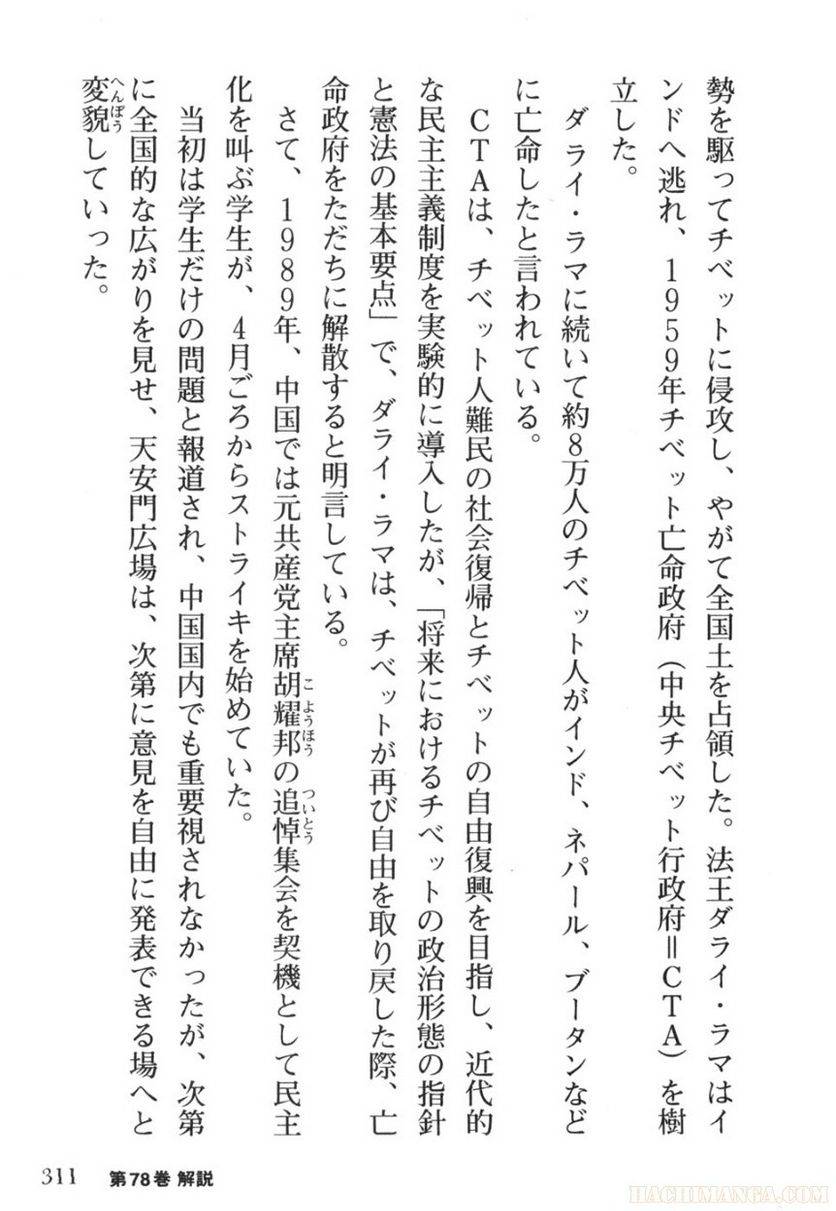 勢を駆ってチベットに侵攻し、やがて全国土を占領した。法王ダライ・ラマはイ
ンドへ逃れ、1959年チベット亡命政府（中央チベット行政府＝CTA）を樹
立した。
ダライ・ラマに続いて約8万人のチベット人がインド、ネパール、ブータンなど
に亡命したと言われている。
CTAは、チベット人難民の社会復帰とチベットの自由復興を目指し、近代的
な民主主義制度を実験的に導入したが、「将来におけるチベットの政治形態の指針
と憲法の基本要点」で、ダライ・ラマは、チベットが再び自由を取り戻した際、亡
命政府をただちに解散すると明言している。
さて、1989年、中国では元共産党主席胡耀邦の追悼集会を契機として民主
こ ようほう
ついとう
化を叫ぶ学生が、4月ごろからストライキを始めていた。
当初は学生だけの問題と報道され、中国国内でも重要視されなかったが、次第
に全国的な広がりを見せ、天安門広場は、次第に意見を自由に発表できる場へと
変貌していった。
へんぼう
311 第78巻 解説
HACHIMANGA.COM